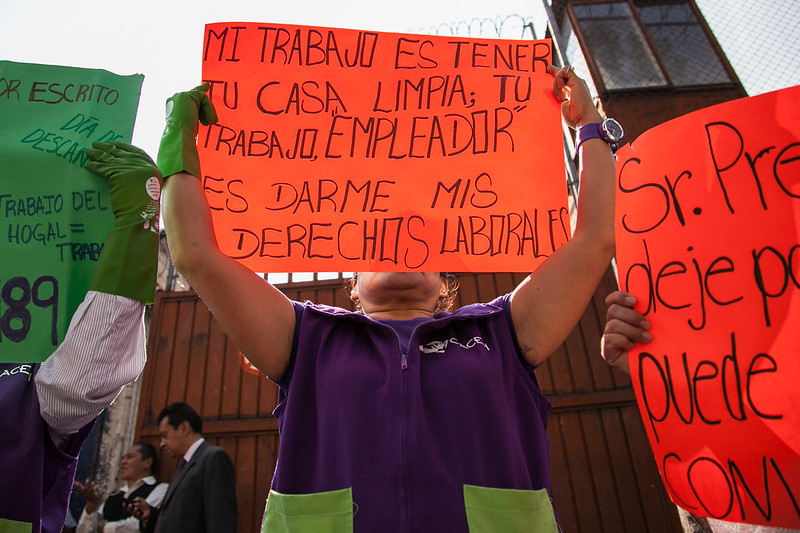 MI TRABAJO ES TENER
TU CASA LIMPIA; TU
TRABAJO, "EMPLEADOR"
ES DARME MIS
DERECHOS LABORALES
POR ESCRITO
DÍA DE
TRABAJO DEL
HOGAL =
189
Sr. Pre
deje po
puede
CONV